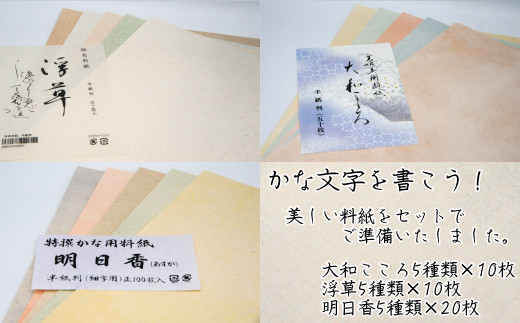 仮名料紙
浮草
半紙判 五十枚入
大和こころ
半紙判(五十枚)
特撰かな用料紙
明日香(あすか)
半紙判(細字用)正100枚入
かな文字を書こう！
美しい料紙をセットで
ご準備いたしました。
大和こころ5種類×10枚
浮草5種類×10枚
明日香5種類×20枚